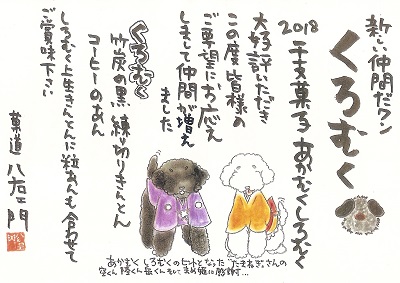 新しい仲間だワン
くろむく
2018 干支菓子 あかむくしろむく
大好評いただき
この度皆様の
ご要望にお応え
しまして仲間が増え
ました
くろむく
竹炭の黒 練切りきんとん
コーヒーのあん
しろむく上生きんとんに粒あんも合わせて
ご賞味下さい
菓道 八右ヱ門
あかむく しろむくのヒントとなった "たまねぎ"さんの
空くん 陸くん 岳くん そして まめ姫に感謝…